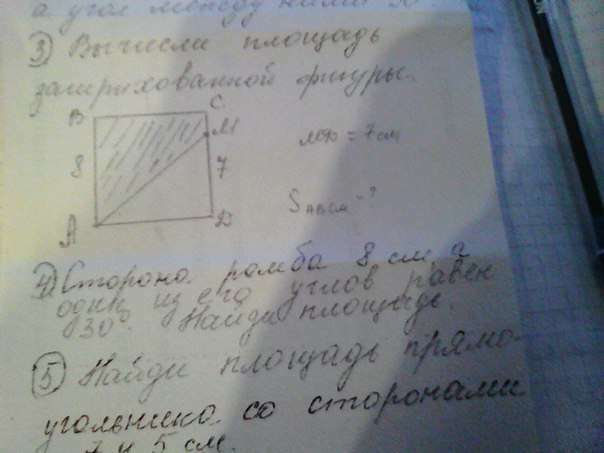 а угол между ними 30
③ Вычисли площадь
заштрихованной фигуры.
B C
M
MD = 7 см
8 7
S ABCM - ?
A D
④ Сторона ромба 8 см, а
один из его углов равен
30°. Найди площадь.
⑤ Найди площадь прямо-
угольника со сторонами
7 и 5 см.